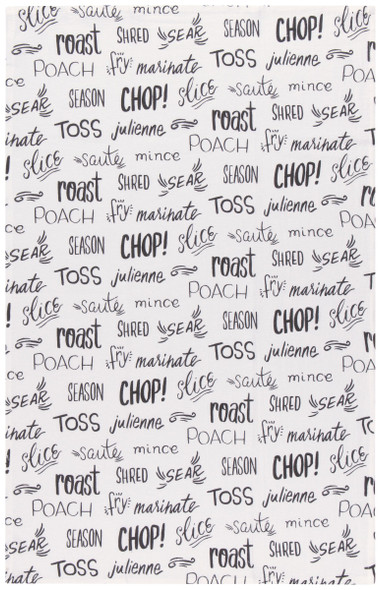 slice sauté mince
roast SHRED SEAR
POACH fry marinate TOSS julienne
SEASON CHOP! slice sauté mince
SEAR roast SHRED SEAR
marinate TOSS julienne POACH fry marinate
slice sauté mince SEASON CHOP!
roast SHRED SEAR TOSS julienne
POACH fry marinate
SEASON CHOP! slice sauté mince
SEAR roast SHRED SEAR
marinate TOSS julienne POACH fry marinate
slice sauté mince SEASON CHOP!
roast SHRED SEAR TOSS julienne
POACH fry marinate
SEASON CHOP! slice sauté mince
SEAR roast SHRED SEAR
TOSS julienne POACH fry marinate
slice sauté mince SEASON CHOP!
roast SHRED SEAR TOSS julienne
POACH fry marinate
SEASON CHOP! slice sauté mince
SEAR roast SHRED SEAR
TOSS julienne POACH fry marinate